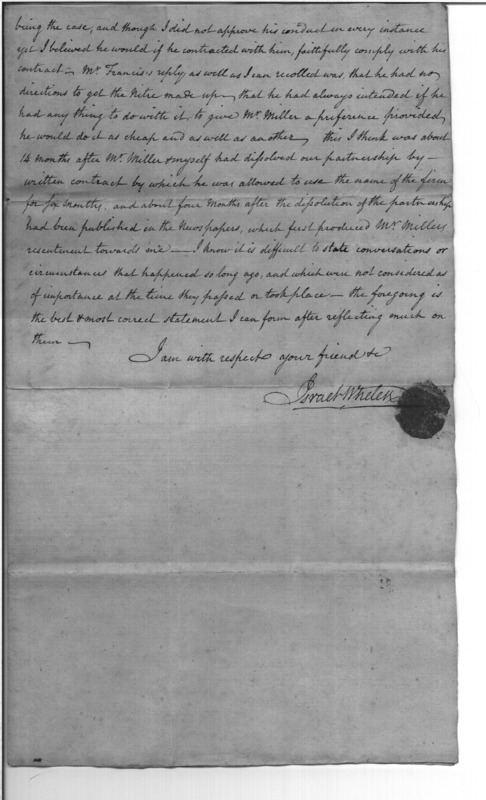 being the case, and though I did not approve his conduct in every instance
yet I believed he would if he contracted with him, faithfully comply with his
contract — Mr. Francis's reply as well as I can recollect was, that he had no
directions to get the Nitre made up — that he had always intended if he
had any thing to do with it, to give Mr. Miller a preference provided,
he would do it as cheap and as well as another, this I think was about
14 months after Mr. Miller & myself had dissolved our partnership by —
written contract by which he was allowed to use the name of the firm
for six months, and about four months after the dissolution of the partnership
had been published in the Newspapers, which first produced Mr. Millers
resentment towards me — I know it is difficult to state conversations or
circumstances that happened so long ago, and which were not considered as
of importance at the time they passed or took place — the foregoing is
the best & most correct statement I can form after reflecting much on
them —
I am with respect your friend &c
Israel Whelen